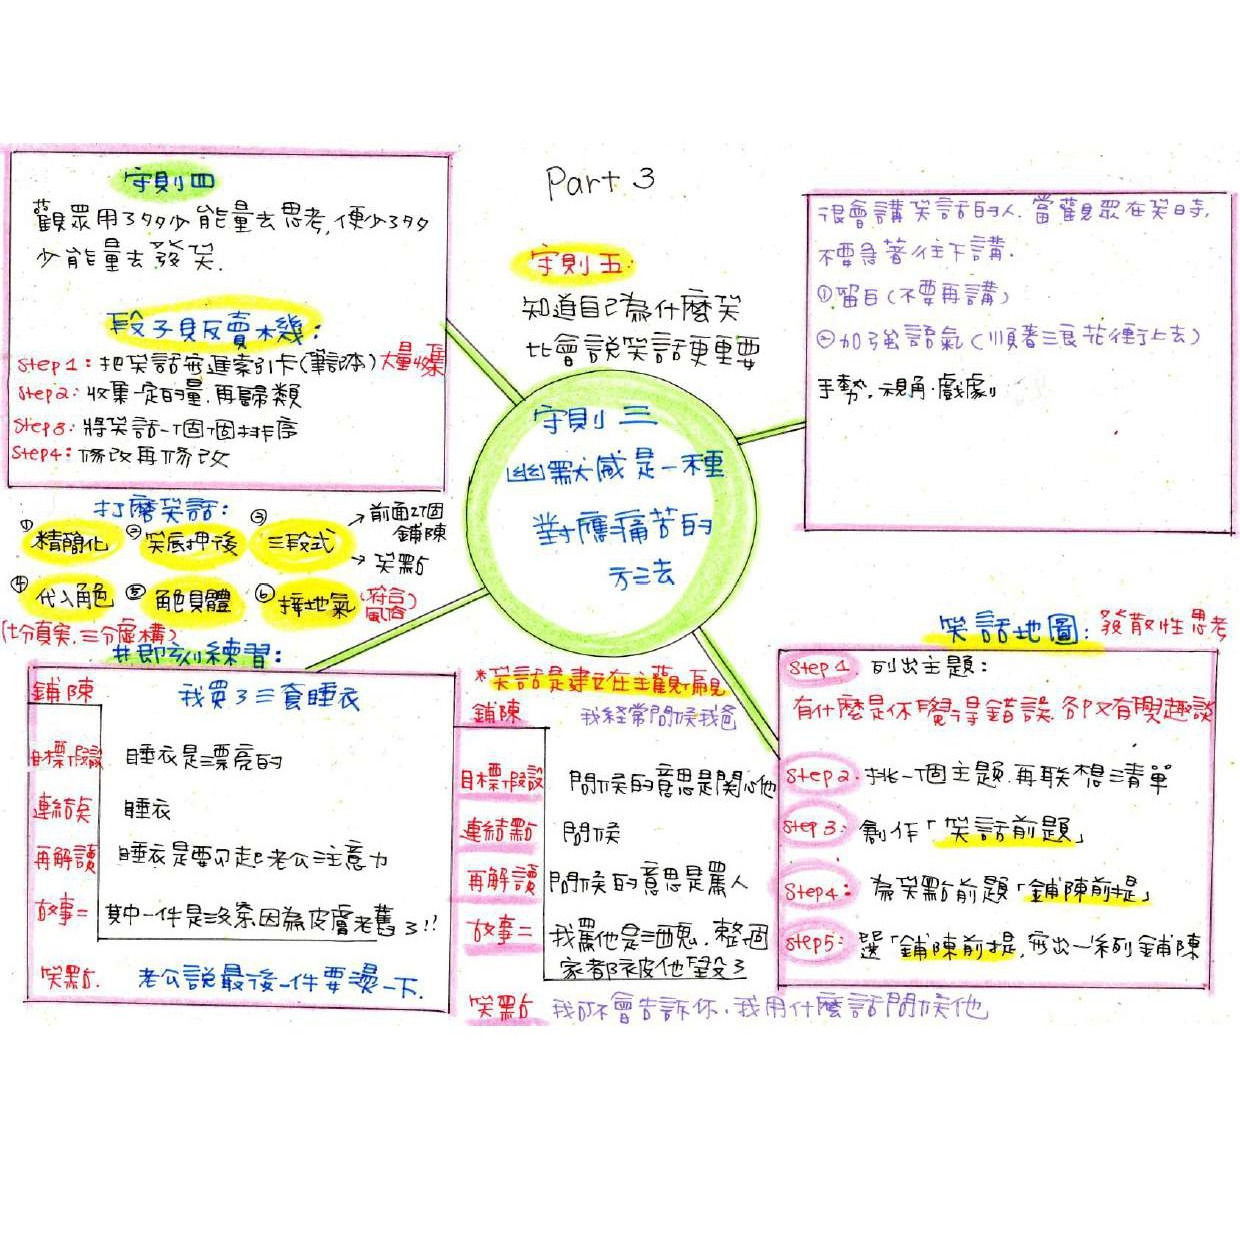 Part 3
守則四
觀眾用了99少能量去思考,便少了99
少能量去發笑.
段子員反賣木幾:
Step1:把笑話寫進索引卡(筆記本)大量收集
Step2:收集一定的量.再歸類
Step3:將笑話一個個排序
Step4:修改再修改
守則五:
知道自己為什麼笑
比會說笑話更重要
守則三
幽默感是一種
對應痛苦的
方法
很會講笑話的人.當觀眾在笑時,
不要急著往下講.
①留白(不要再講)
②加強語氣(順著浪花衝上去)
手勢.視角.戲劇
打磨笑話:
①精簡化 ②笑底押後 ③三段式
→前面2個鋪陳
→笑點
④代入角色 ⑤角色具體 ⑥接地氣(符合風俗)
(七分真実.三分虛構)
#即刻練習:
鋪陳 我買了三套睡衣
目標假設 睡衣是漂亮的
連結點 睡衣
再解讀 睡衣是要引起老公注意力
故事二 其中一件是沒燙因為皮膚老舊了!!
笑點. 老公說最後一件要燙一下.
*笑話是建立在主觀偏見
鋪陳 我経常問候我爸
目標假設 問候的意思是関心他
連結點 問候
再解讀 問候的意思是罵人
故事二 我罵他是酒鬼.整個
家都被他毀了
笑點 我可不會告訴你.我用什麼話問候他
笑話地圖:發散性思考
Step1.列出主題:
有什麼是你覺得錯誤.卻又有興趣談
Step2.挑一個主題.再联想清單
Step3:創作「笑話前題」
Step4:為笑點前題「鋪陳前提」
Step5:選「鋪陳前提,寫出一系列鋪陳